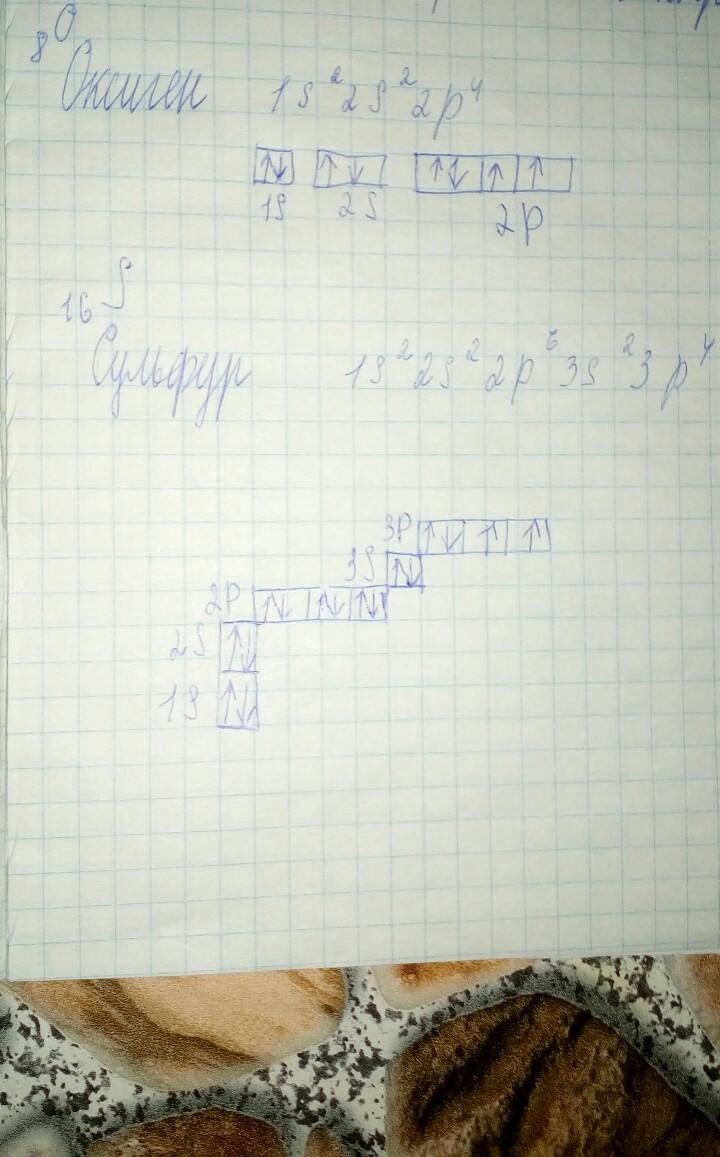 ₈O
Оксиген 1s²2s²2p⁴
↑↓ ↑↓ ↑↓ ↑ ↑
1s 2s 2p
₁₆S
Сульфур 1s²2s²2p⁶3s²3p⁴
3p ↑↓ ↑ ↑
3s ↑↓
2p ↑↓ ↑↓ ↑↓
2s ↑↓
1s ↑↓